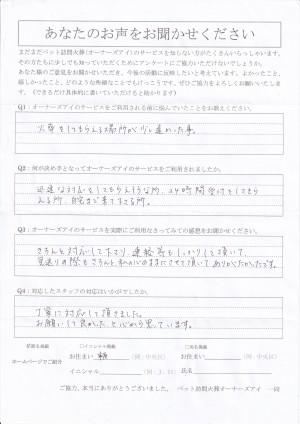 あなたのお声をお聞かせください
まだまだペット訪問火葬(オーナーズアイ)のサービスを知らない方がたくさんいらっしゃいます。
その方たちに少しでも知っていただくためにアンケートにご協力いただけないでしょうか。
あなた様のご意見をお聞かせいただき、今後の活動に反映したいと考えています。よかったこと、
嬉しかったこと、どのような些細なことでもけっこうです。ぜひご協力をよろしくお願いいたします。
(できるだけ具体的に書いていただけると助かります。)
Q1:オーナーズアイのサービスをご利用される前に悩んでいたことをお教えください。
火葬をしてもらえる場所が少し遠かった事。
Q2:何が決め手となってオーナーズアイのサービスをご利用されましたか。
迅速な対応をしてもらえそうな所、24時間受付をしてもら
える所、自宅まで来て下さる所。
Q3:オーナーズアイのサービスを実際にご利用なさってみての感想をお聞かせください。
きちんと対応して下さり、連絡等もしっかりして頂いて、
見送りの際もきちんと私の心のままにさせて頂いてありがたかったです。
Q4:対応したスタッフの対応はいかがでしたか。
丁寧に対応して頂きました。
お願いして良かった、と心から思っています。
ホームページでご紹介
□イニシャル掲載
□実名掲載
お住まい
(例:中央区)
お住まい
(例:中央区)
イニシャル
氏名
ご協力、本当にありがとうございました。 ペット訪問火葬オーナーズアイ 一同